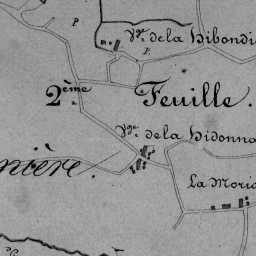 P.
Vge. de la Hibondi
P.
2ème Feuille.
Vge. de la Hidonna
nière.
La Moric